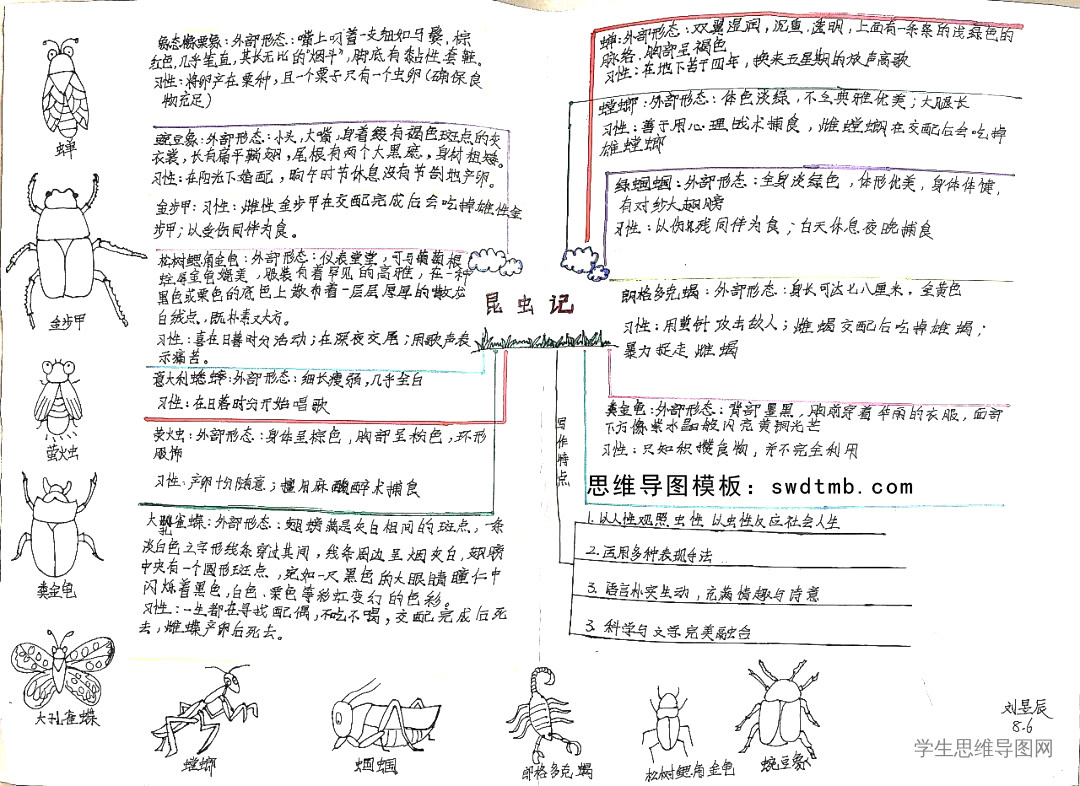 象态橡栗象：外部形态：嘴上叼着一支细如马鬃，棕
红色，几乎笔直，其长无比的“烟斗”，脚底有黏性套鞋。
习性：将卵产在栗种，且一个栗子只有一个虫卵（确保食
物充足）
豌豆象：外部形态：小头，大嘴，身着缀有褐色斑点的灰
衣裳，长有扁平鞘翅，尾根有两个大黑痣，身材粗矮。
习性：在阳光下婚配，晌午时节休息没有节制地产卵。
金步甲：习性：雌性金步甲在交配完成后会吃掉雄性金
步甲；以受伤同伴为食。
松树鳃角金龟：外部形态：仪表堂堂，可与葡萄根
蛀犀金龟媲美，服装有着罕见的高雅，在一种
黑色或栗色的底色上散布着一层层厚厚的
白绒点，既朴素又大方。
习性：喜在日暮时分活动；在深夜交尾；用歌声表
示痛苦。
意大利蟋蟀：外部形态：细长瘦弱，几乎全白
习性：在日暮时分开始唱歌
萤火虫：外部形态：身体呈棕色，胸部呈粉色，环形
服饰
习性：产卵十分随意；擅用麻醉术捕食
大孔雀蝶：外部形态：翅膀满是灰白相间的斑点，一条
淡白色之字形线条穿过其间，线条周边呈烟灰白，翅膀
中央有一个圆形斑点，宛如一只黑色的大眼睛瞳仁中
闪烁着黑色，白色，栗色等彩虹变幻的色彩。
习性：一生都在寻找配偶，不吃不喝，交配完成后死
去，雌蝶产卵后死去。
昆虫记
蝉：外部形态：双翼湿润，沉重，透明，上面有一条条的浅绿色的
脉络，胸部呈褐色
习性：在地下苦干四年，换来五星期的放声高歌
螳螂：外部形态：体色淡绿，不失典雅优美；大腿长
习性：善于用心理战术捕食，雌螳螂在交配后会吃掉
雄螳螂
绿蝈蝈：外部形态：全身淡绿色，体形优美，身体体健，
有对纱大翅膀
习性：以伤残同伴为食；白天休息夜晚捕食
郎格多克蝎：外部形态：身长可达七八厘米，金黄色
习性：用螫针攻击敌人；雌蝎交配后吃掉雄蝎；
暴力捉走雌蝎
粪金龟：外部形态：背部墨黑，胸前穿着华丽的衣服，面部
下方像紫水晶般闪亮黄铜光芒
习性：只知积攒食物，并不完全利用
写作特点
思维导图模板：swdtmb.com
1.以人性观照虫性 以虫性反应社会人生
2.运用多种表现手法
3.语言朴实生动，充满情趣与诗意
3.科学与文学完美融合
蝉
金步甲
萤火虫
粪金龟
大孔雀蝶
螳螂
蝈蝈
郎格多克蝎
松树鳃角金龟
豌豆象
刘昱辰
8.6
学生思维导图网